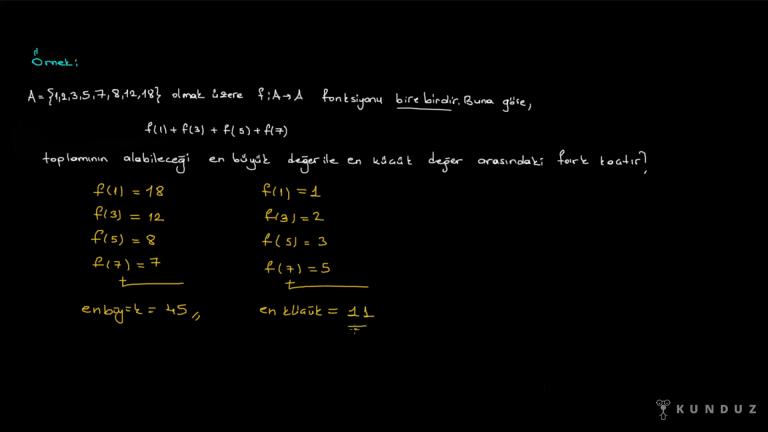 Örnek:
A = {1,2,3,5,7,8,12,18} olmak üzere f:A→A fonksiyonu bire birdir. Buna göre,
f(1) + f(3) + f(5) + f(7)
toplamının alabileceği en büyük değer ile en küçük değer arasındaki fark kaçtır?
f(1) = 18 f(1) = 1
f(3) = 12 f(3) = 2
f(5) = 8 f(5) = 3
f(7) = 7 f(7) = 5
+ +
en büyük = 45 en küçük = 11
KUNDUZ